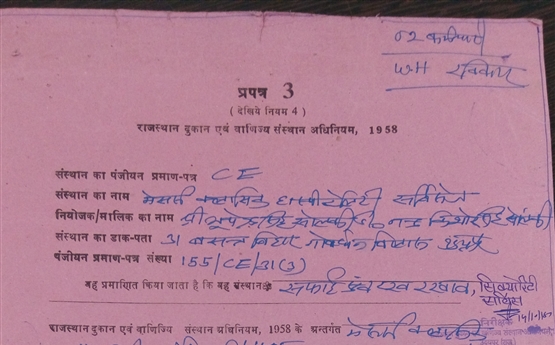 02 कर्मचारी
WH रविवार
प्रपत्र 3
( देखिये नियम 4 )
राजस्थान दुकान एवं वाणिज्य संस्थान अधिनियम, 1958
संस्थान का पंजीयन प्रमाण-पत्र CE
संस्थान का नाम मेसर्स क्लासिक हास्पीटेलिटी सर्विसेज
नियोजक/मालिक का नाम श्री सोलंकी नन्द किशोर सिंह सोलंकी
संस्थान का डाक-पता 31 बसन्त विहार गोवर्धन विलास उदयपुर
पंजीयन प्रमाण-पत्र संख्या 155/CE/31(3)
यह प्रमाणित किया जाता है कि यह संस्थान सफाई एवं रखरखाव, सिक्योरिटी
सर्विस
निरीक्षक
राजस्थान दुकान एवं वाणिज्य संस्थान अधिनियम, 1958 के अन्तर्गत मेसर्स क्लासिक